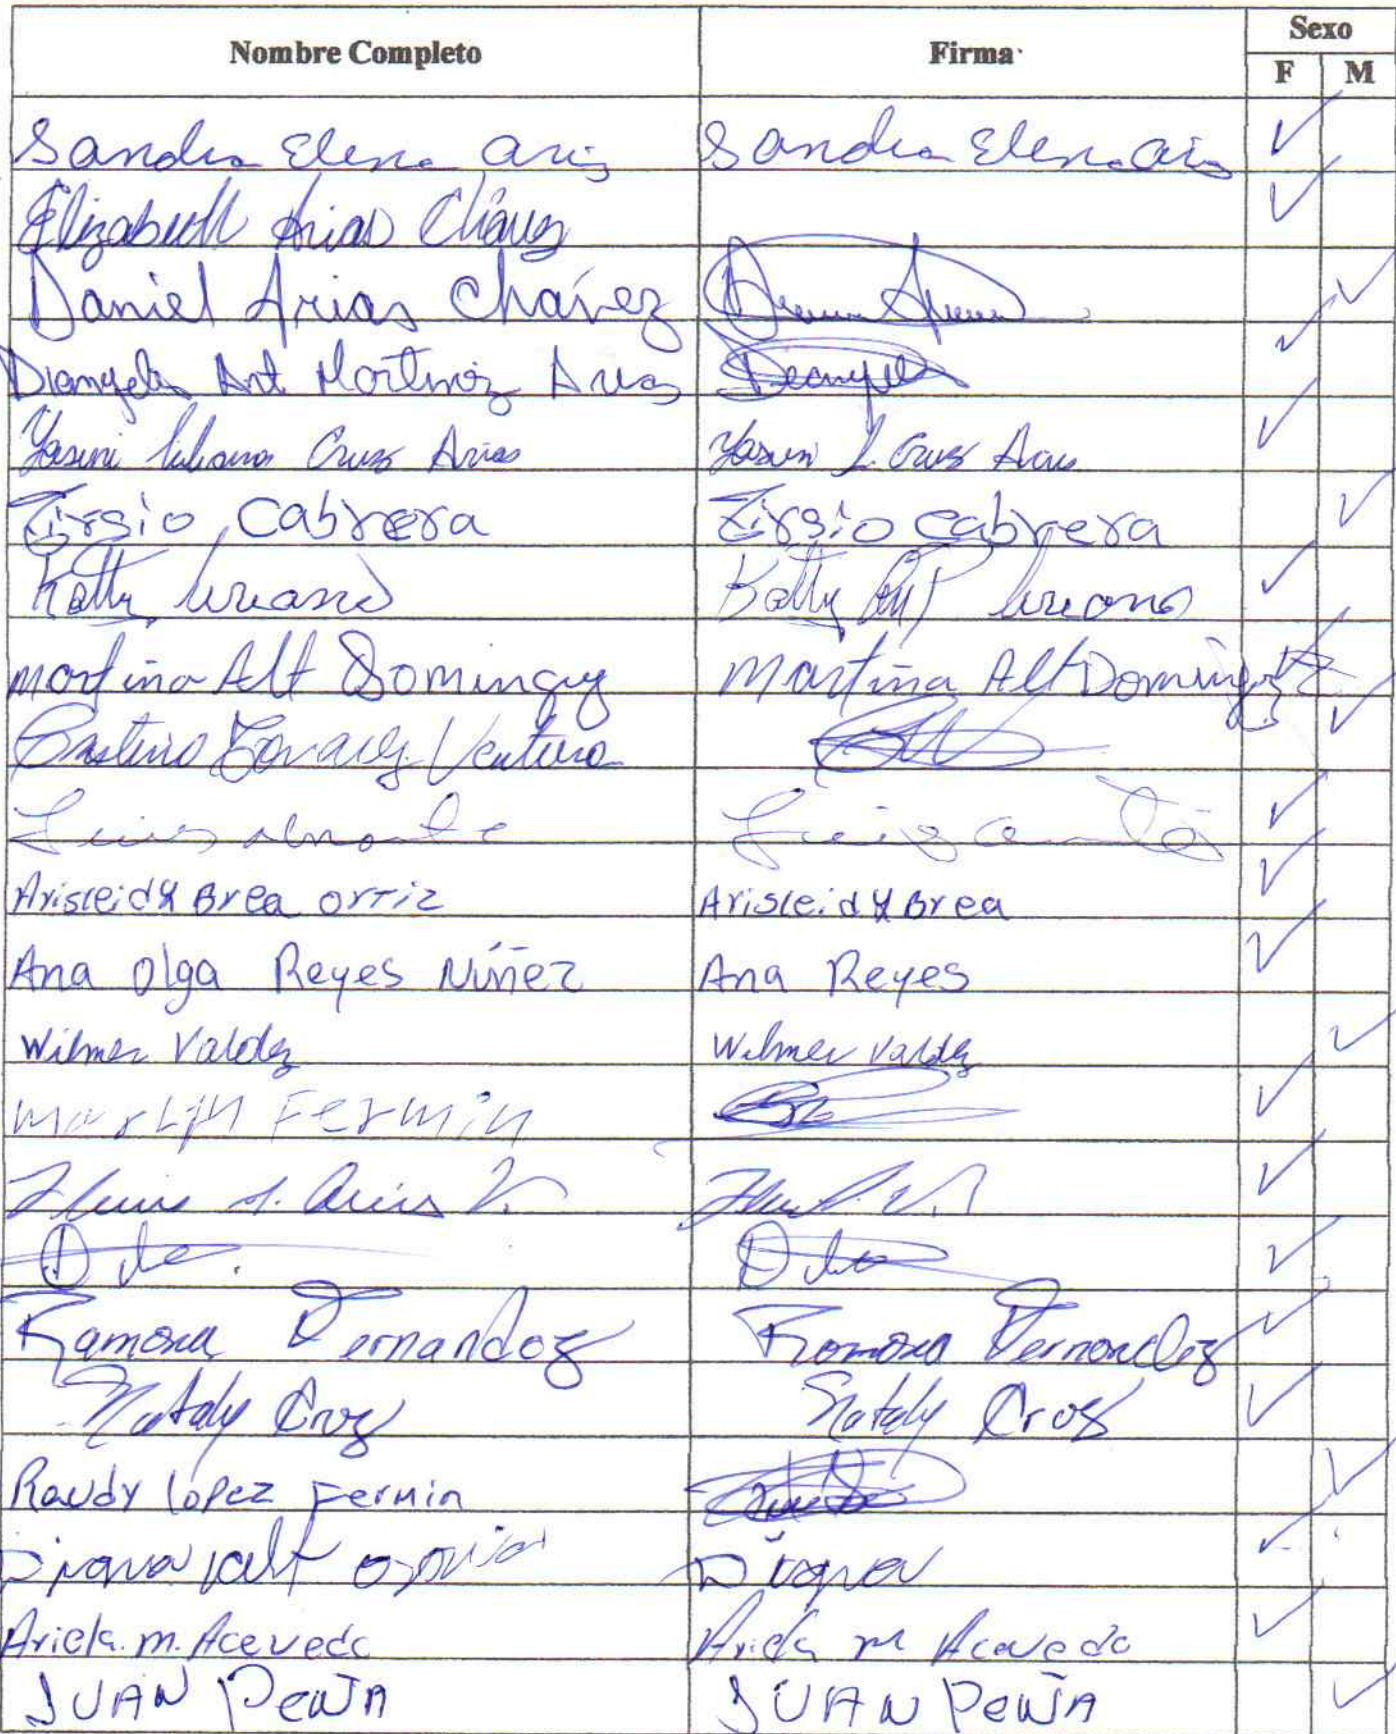 Nombre Completo Firma Sexo
F M
Sandra Elena Arias Sandra Elena Arias
Elizabeth Arias Chávez
Daniel Arias Chávez
Diangela Ant Martinez Arias Diangela
Yasiri Liliana Cruz Arias Yasiri L. Cruz Arias
Tirsio Cabrera Tirsio Cabrera
Katty Liriano Katty Liriano
Martina Alt Dominguez Martina Alt Dominguez
Ventura
Luis Almonte Luis
Arisleidy Brea Ortiz Arisleidy Brea
Ana Olga Reyes Núñez Ana Reyes
Wilmer Valdez Wilmer Valdez
Marlyn Fermin
Ramona Fernandez Ramona Fernandez
Nataly Cruz Nataly Cruz
Raudy López Fermin
Diana Diana
Ariela. m. Acevedo Ariela m Acevedo
JUAN PeÑA JUAN PeÑA